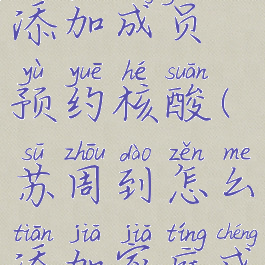 添加成员
yù yuē hé suān
预约核酸(
sū zhōu dào zěn me
苏周到怎么
tiān jiā jiā tíng chéng
添加家庭成